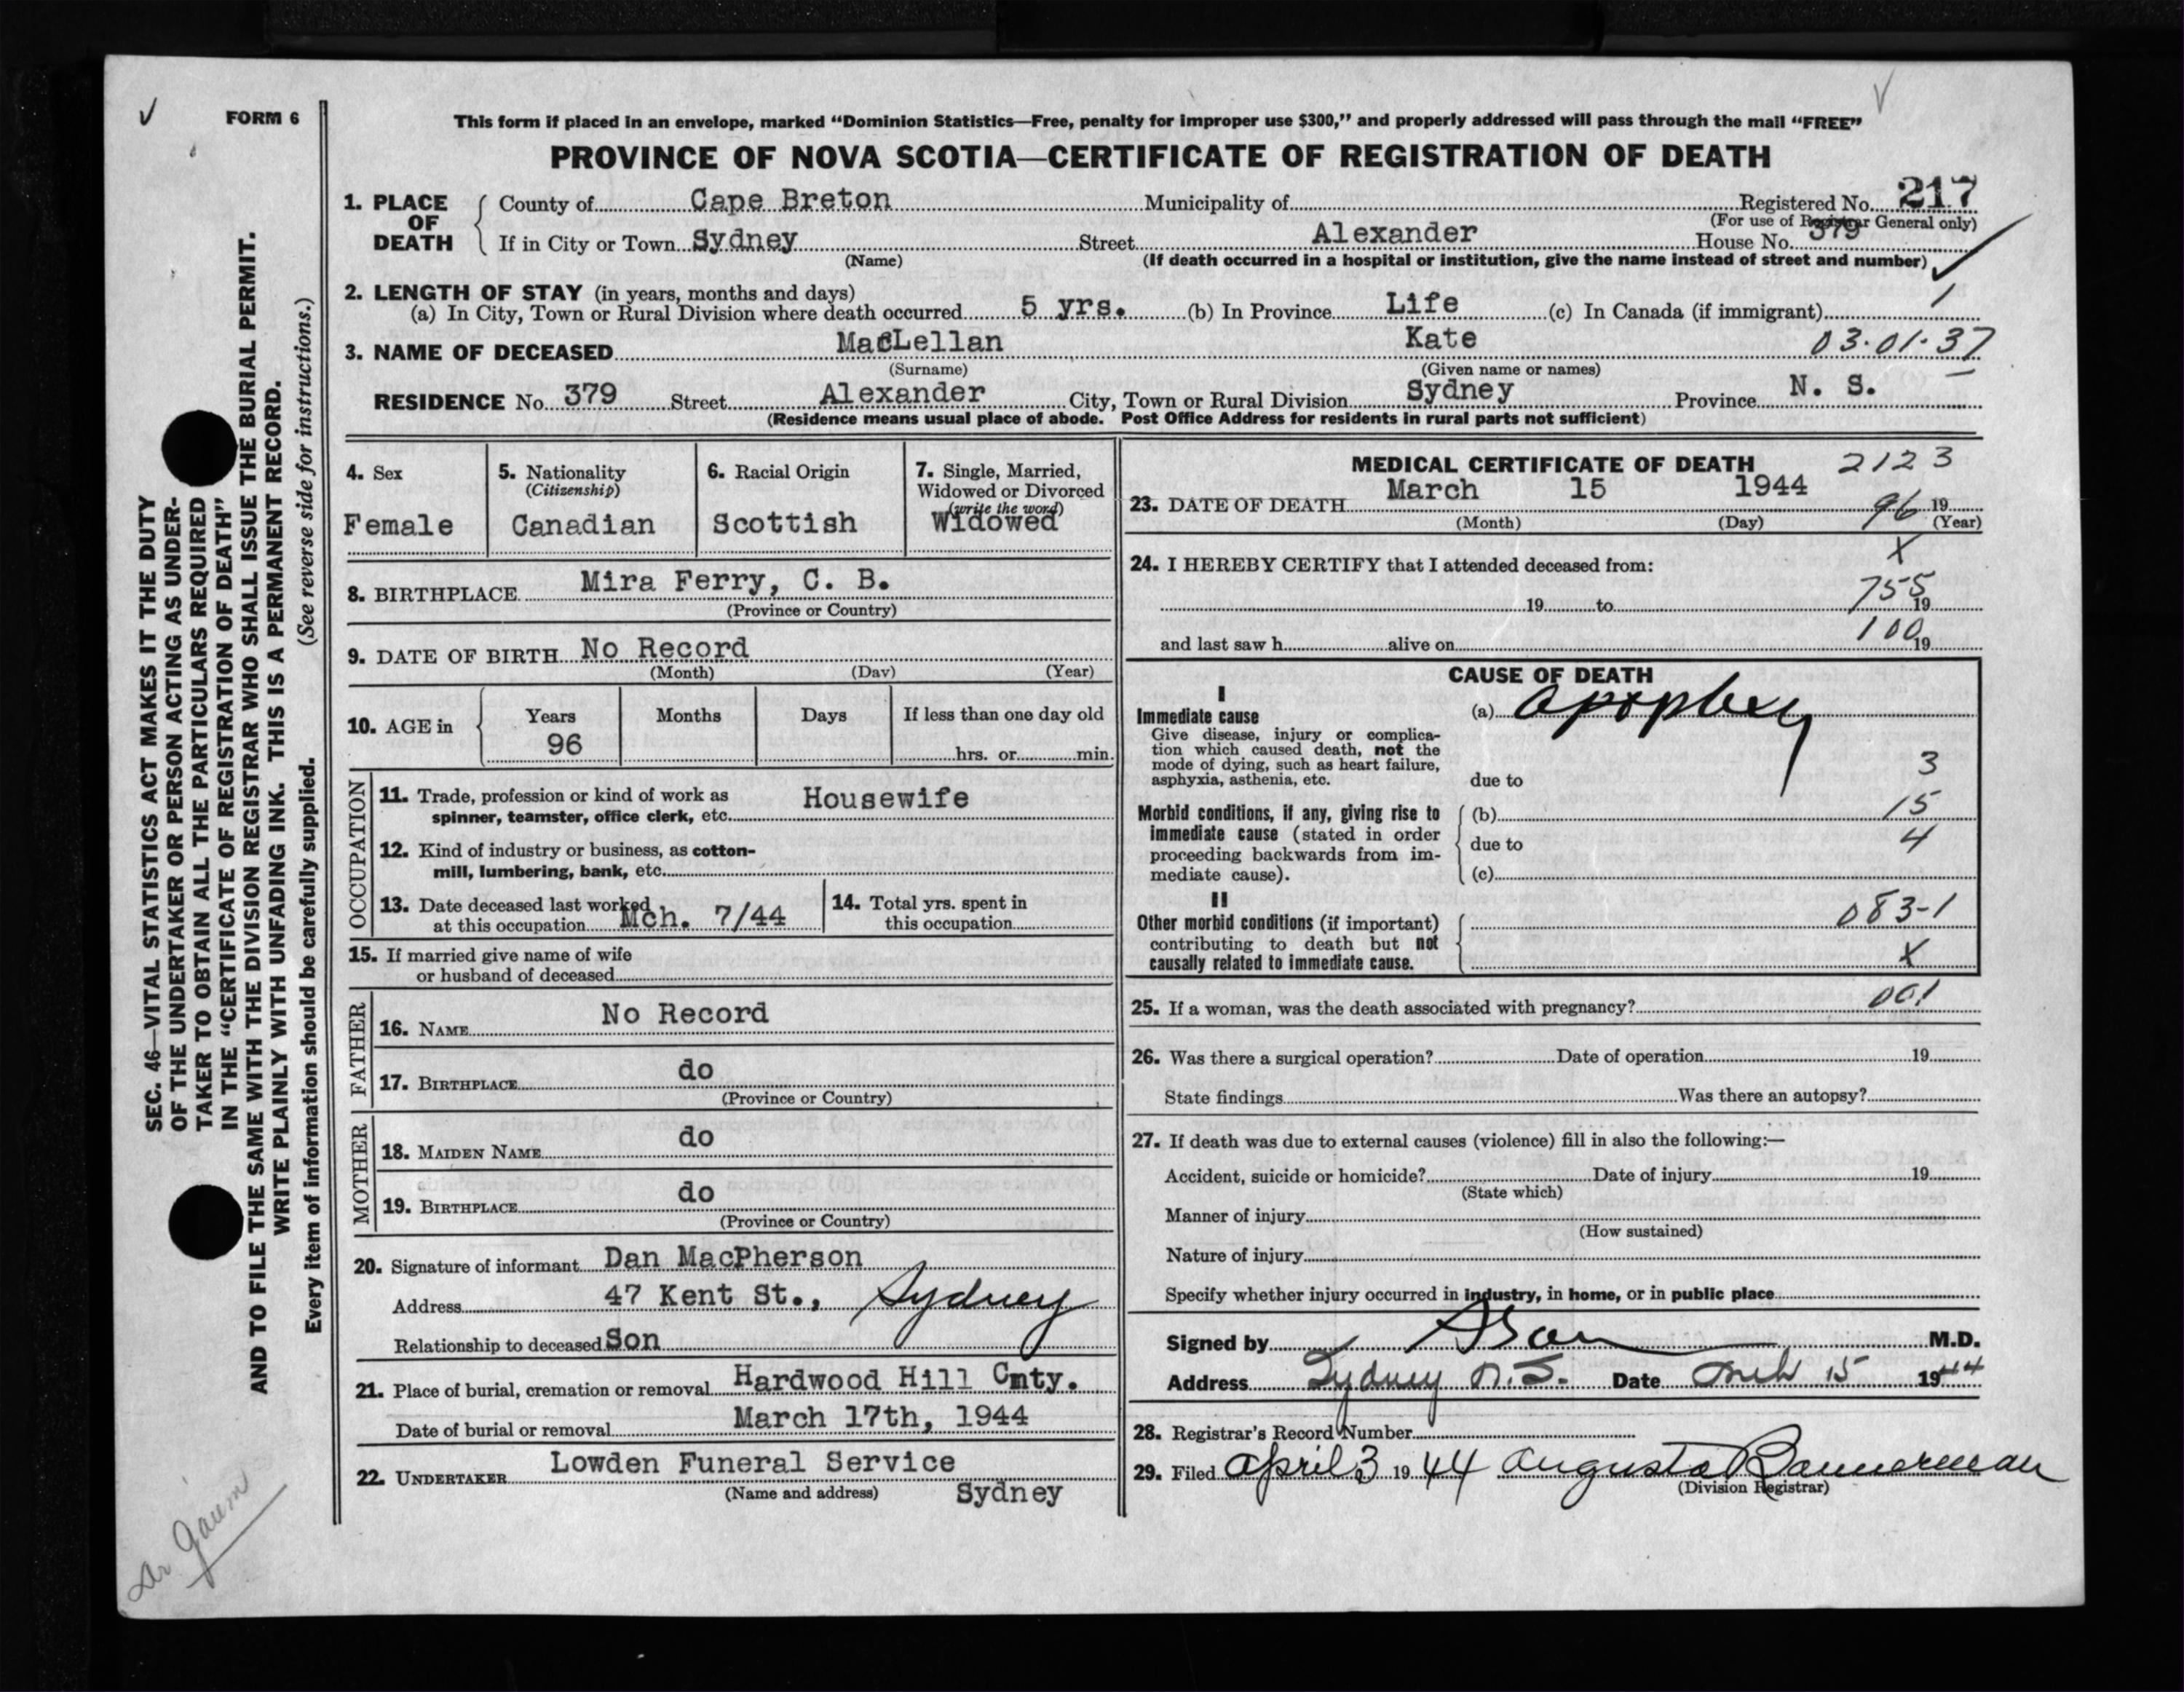 FORM 6
This form if placed in an envelope, marked “Dominion Statistics—Free, penalty for improper use $300,” and properly addressed will pass through the mail “FREE”
PROVINCE OF NOVA SCOTIA—CERTIFICATE OF REGISTRATION OF DEATH
1. PLACE OF DEATH County of Cape Breton Municipality of Registered No. 217
(For use of Registrar General only)
If in City or Town Sydney Street Alexander House No. 379
(Name) (If death occurred in a hospital or institution, give the name instead of street and number)
2. LENGTH OF STAY (in years, months and days)
(a) In City, Town or Rural Division where death occurred 5 yrs. (b) In Province Life (c) In Canada (if immigrant) 1
3. NAME OF DECEASED MacLellan Kate 03-01-37
(Surname) (Given name or names)
RESIDENCE No. 379 Street Alexander City, Town or Rural Division Sydney Province N. S.
(Residence means usual place of abode. Post Office Address for residents in rural parts not sufficient)
4. Sex
Female
5. Nationality
(Citizenship)
Canadian
6. Racial Origin
Scottish
7. Single, Married,
Widowed or Divorced
(write the word)
Widowed
8. BIRTHPLACE Mira Ferry, C. B.
(Province or Country)
9. DATE OF BIRTH No Record
(Month) (Day) (Year)
10. AGE in Years Months Days If less than one day old
96 hrs. or min.
OCCUPATION
11. Trade, profession or kind of work as
spinner, teamster, office clerk, etc. Housewife
12. Kind of industry or business, as cotton-
mill, lumbering, bank, etc.
13. Date deceased last worked
at this occupation Mch. 7/44
14. Total yrs. spent in
this occupation
15. If married give name of wife
or husband of deceased
FATHER
16. NAME No Record
17. BIRTHPLACE do
(Province or Country)
MOTHER
18. MAIDEN NAME do
19. BIRTHPLACE do
(Province or Country)
20. Signature of informant Dan MacPherson
Address 47 Kent St., Sydney
Relationship to deceased Son
21. Place of burial, cremation or removal Hardwood Hill Cmty.
Date of burial or removal March 17th, 1944
22. UNDERTAKER Lowden Funeral Service
(Name and address) Sydney
MEDICAL CERTIFICATE OF DEATH 2123
23. DATE OF DEATH March 15 1944
96 19
(Month) (Day) (Year)
X
24. I HEREBY CERTIFY that I attended deceased from:
755
19 to 19
100
and last saw h alive on 19
CAUSE OF DEATH
I
Immediate cause (a) apoplexy
Give disease, injury or complica-
tion which caused death, not the
mode of dying, such as heart failure,
asphyxia, asthenia, etc. due to 3
Morbid conditions, if any, giving rise to (b) 15
immediate cause (stated in order due to 4
proceeding backwards from im-
mediate cause). (c)
II
Other morbid conditions (if important) 083-1
contributing to death but not
causally related to immediate cause. X
25. If a woman, was the death associated with pregnancy? 001
26. Was there a surgical operation? Date of operation 19
State findings Was there an autopsy?
27. If death was due to external causes (violence) fill in also the following:—
Accident, suicide or homicide? Date of injury 19
(State which)
Manner of injury
(How sustained)
Nature of injury
Specify whether injury occurred in industry, in home, or in public place
Signed by M.D.
Address Sydney N.S. Date Mch 15 1944
28. Registrar's Record Number
29. Filed April 3 1944 Augusta Bannerman
(Division Registrar)
SEC. 46—VITAL STATISTICS ACT MAKES IT THE DUTY
OF THE UNDERTAKER OR PERSON ACTING AS UNDER-
TAKER TO OBTAIN ALL THE PARTICULARS REQUIRED
IN THE “CERTIFICATE OF REGISTRATION OF DEATH”
AND TO FILE THE SAME WITH THE DIVISION REGISTRAR WHO SHALL ISSUE THE BURIAL PERMIT.
WRITE PLAINLY WITH UNFADING INK. THIS IS A PERMANENT RECORD.
Every item of information should be carefully supplied. (See reverse side for instructions.)
Dr Gaum